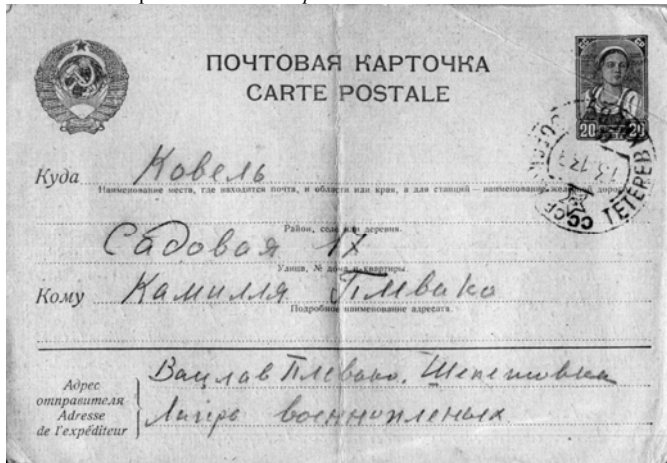 ПОЧТОВАЯ КАРТОЧКА
CARTE POSTALE
20 20
Куда Ковель
Наименование места, где находится почта, и области или края, а для станций — наименование железной дороги
Район, село или деревня.
Садовая 17
Улица, № дома и квартиры.
Кому Камилля Плевако
Подробное наименование адресата.
Адрес отправителя
Adresse de l'expéditeur
Вацлав Плевако. Шепетовка
Лагерь военнопленых
СССР ТЕТЕРЕВ